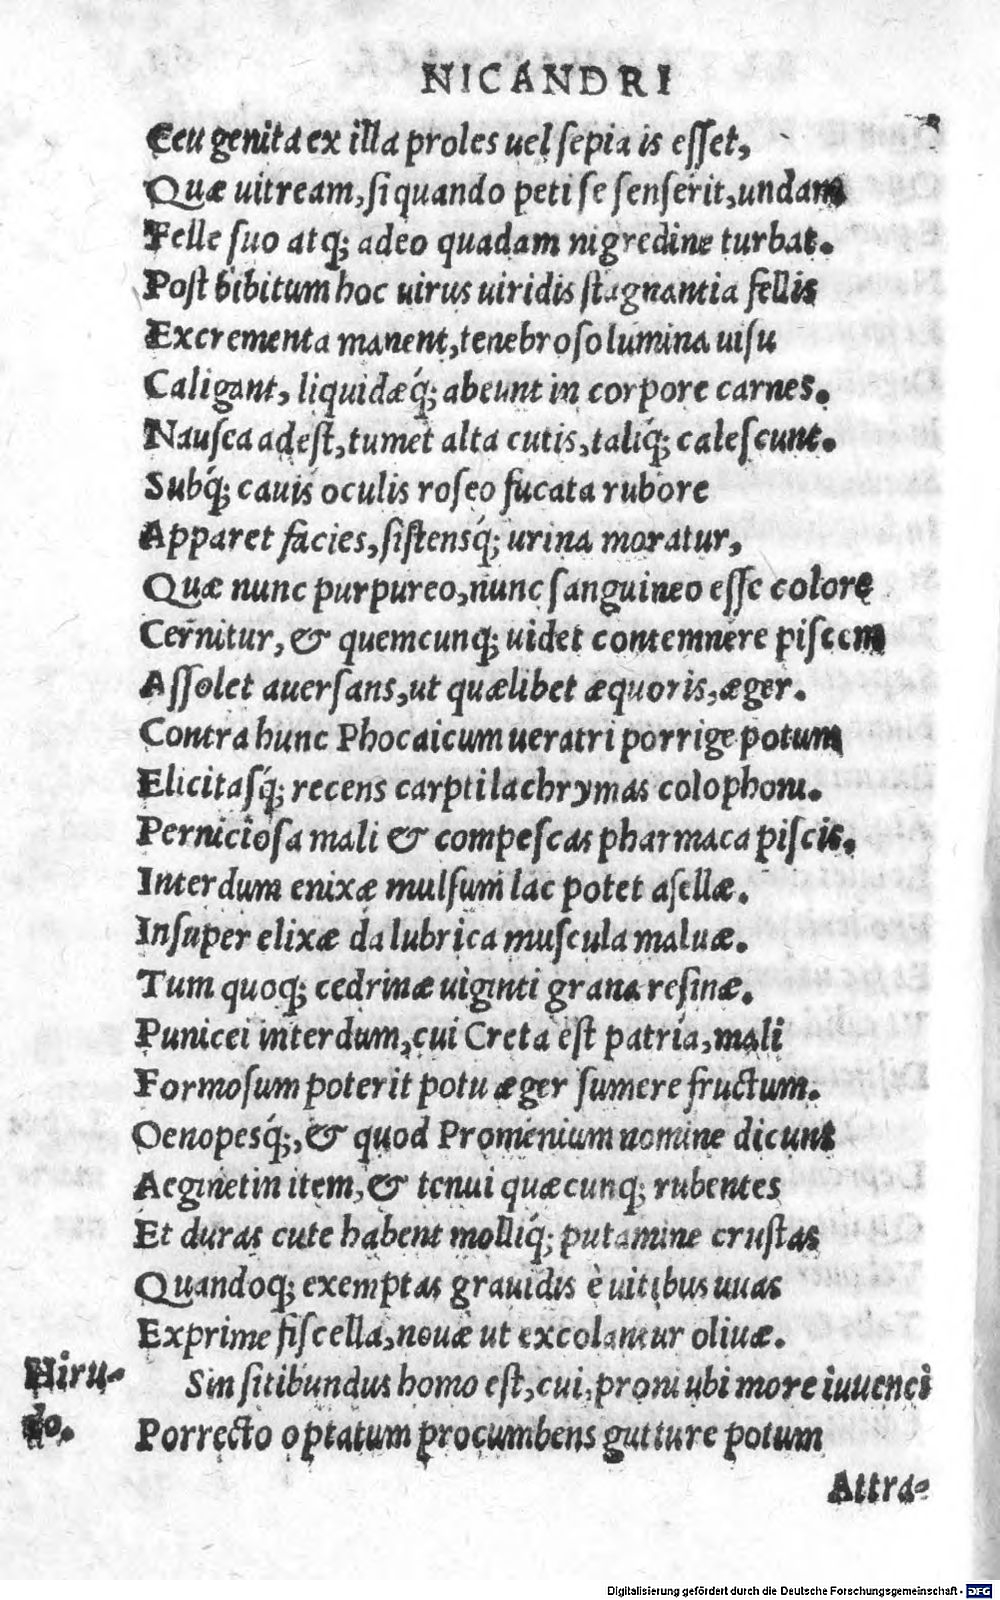 NICANDRI
Ceu genita ex illa proles uel ſepia is eſſet,
Quæ uitream, ſi quando peti ſe ſenſerit, undam
Felle ſuo atq; adeo quadam nigredine turbat.
Poſt bibitum hoc uirus uiridis ſtagnantia fellis
Excrementa manent, tenebroſo lumina uiſu
Caligant, liquidæq́; abeunt in corpore carnes.
Nauſea adeſt, tumet alta cutis, taliq́; caleſcunt.
Subq́; cauis oculis roſeo fucata rubore
Apparet facies, ſiſtensq́; urina moratur,
Quæ nunc purpureo, nunc ſanguineo eſſe colore
Cernitur, & quemcunq; uidet contemnere piſcem
Aſſolet auerſans, ut quælibet æquoris, æger.
Contra hunc Phocaicum ueratri porrige potum
Elicitaſq́; recens carpti lachrymas colophoni.
Pernicioſa mali & compeſcas pharmaca piſcis.
Interdum enixæ mulſum lac potet aſellæ.
Inſuper elixæ da lubrica muſcula maluæ.
Tum quoq; cedrinæ uiginti grana reſinæ.
Punicei interdum, cui Creta eſt patria, mali
Formoſum poterit potu æger ſumere fructum.
Oenopesq́;, & quod Promenium nomine dicunt
Aeginetin item, & tenui quæcunq; rubentes
Et duras cute habent molliq́; putamine cruſtas
Quandoq; exemptas grauidis è uitibus uuas
Exprime fiſcella, nouæ ut excolantur oliuæ.
Hiru-
do.
Sin ſitibundus homo eſt, cui, proni ubi more iuuenci
Porrecto optatum procumbens gutture potum
Attra-
Digitalisierung gefördert durch die Deutsche Forschungsgemeinschaft - DFG